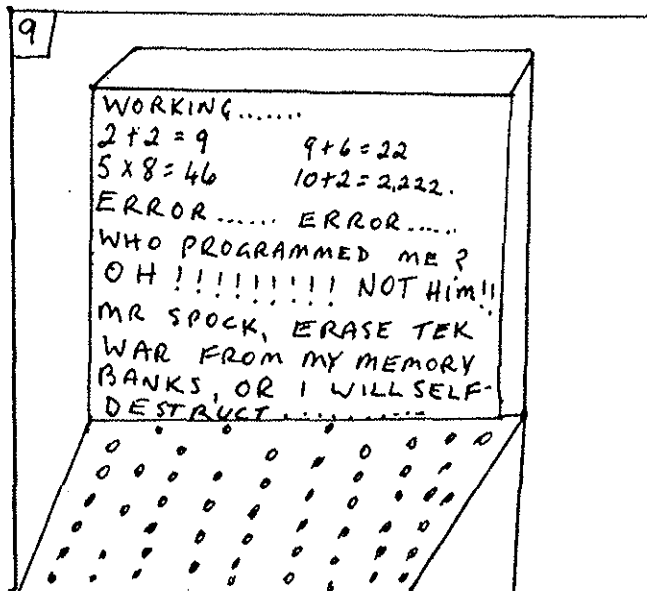 9
WORKING.......
2 + 2 = 9 9 + 6 = 22
5 X 8 = 46 10 + 2 = 2,222.
ERROR...... ERROR.....
WHO PROGRAMMED ME?
OH !!!!!!!!! NOT HIM!!
MR SPOCK, ERASE TEK
WAR FROM MY MEMORY
BANKS, OR I WILL SELF-
DESTRUCT..........